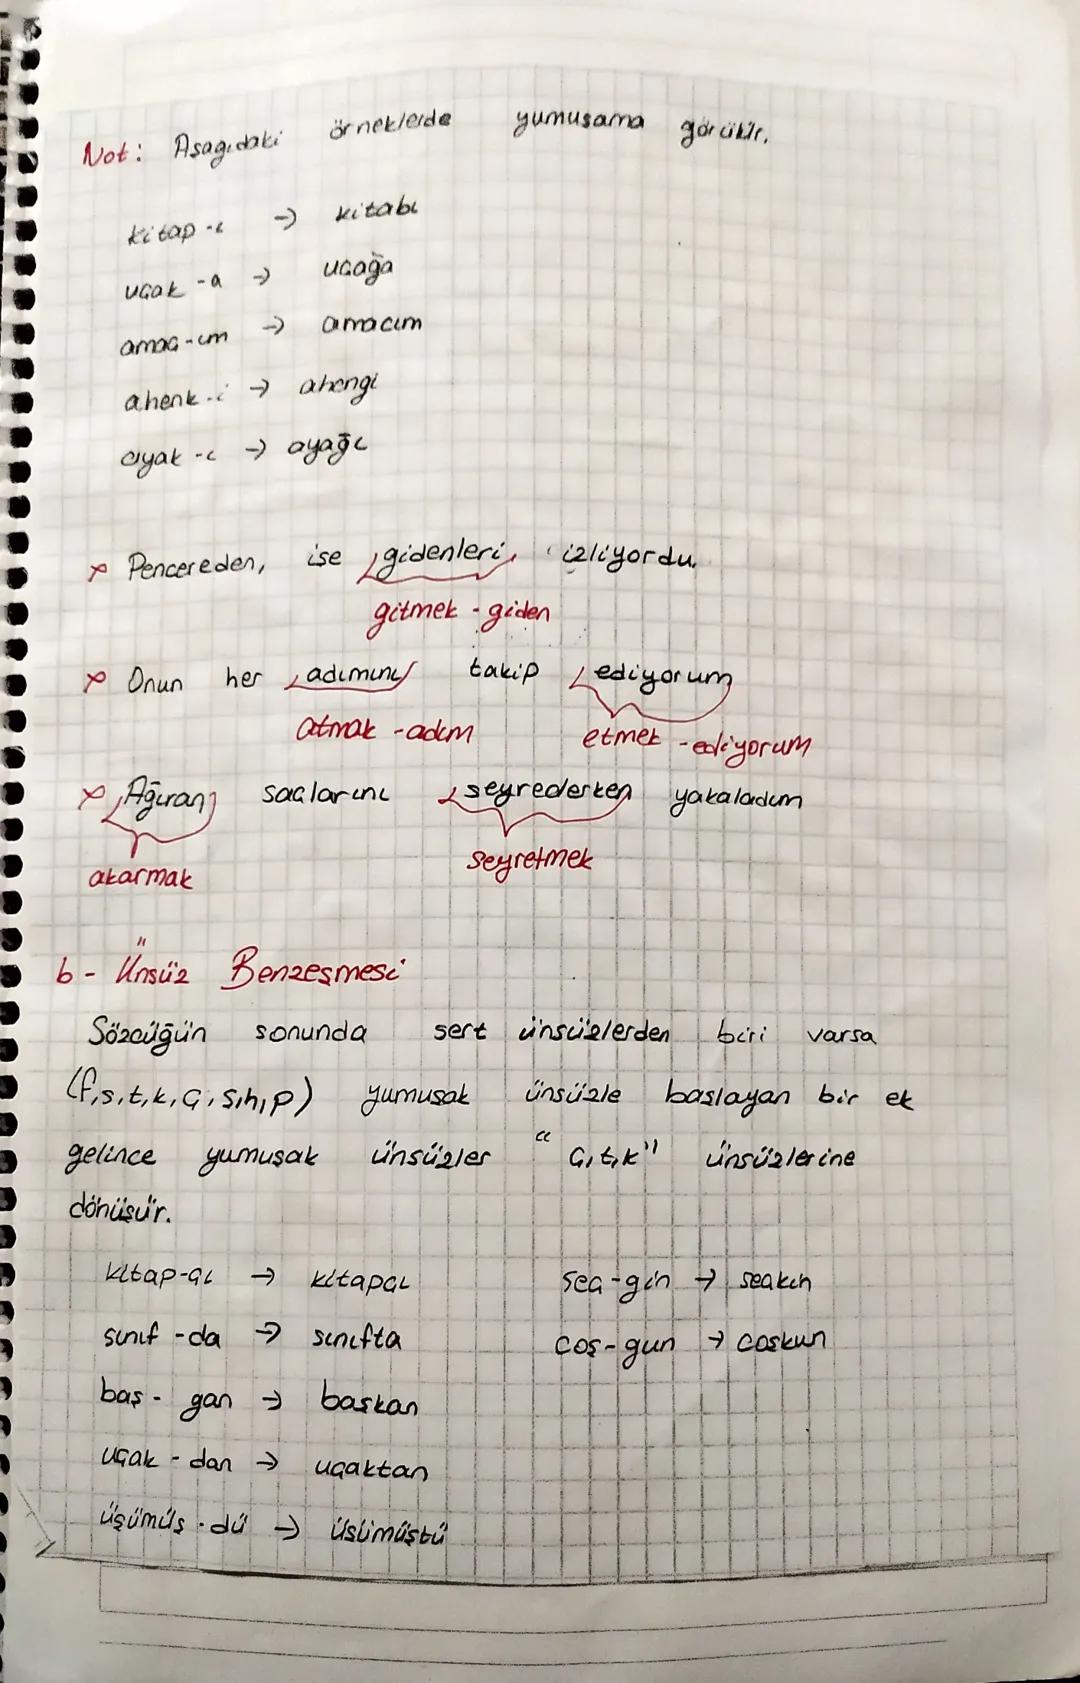 Not: Aşağıdaki örneklerde yumuşama görülür.
kitap -ı → kitabı
uçak -a → uçağa
amaç -ım → amacım
ahenk -i → ahengi
ayak -ı → ayağı
x Pencereden, ise gidenleri izliyordu.
gitmek - giden
x Onun her adımını takip ediyorum
atmak - adım etmek - ediyorum
x Ağıran saçlarını seyrederken yakaladım
akarmak seyretmek
b - Ünsüz Benzeşmesi
Sözcüğün sonunda sert ünsüzlerden biri varsa
(f,s,t,k,ç,ş,h,p) yumuşak ünsüzle başlayan bir ek
gelince yumuşak ünsüzler "ç,t,k" ünsüzlerine
dönüşür.
kitap-çı → kitapçı seç-gin → seçkin
sınıf -da → sınıfta coş-gun → coşkun
baş - gan → başkan
uçak - dan → uçaktan
üşümüş - dü → üşümüştü